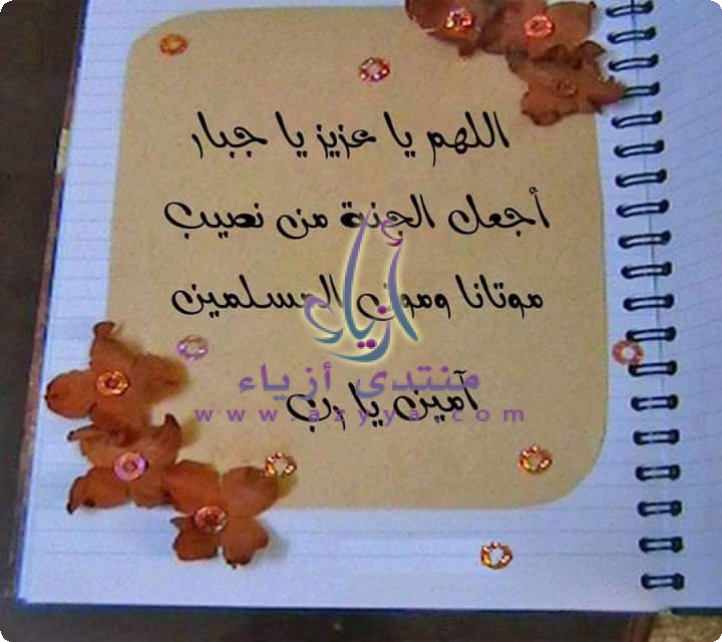 اللهم يا عزيز يا جبار
أجعل الجنة من نصيب
موتانا وموتى المسلمين
آمين يا رب
أزياء
منتدى أزياء
www.azyya.com